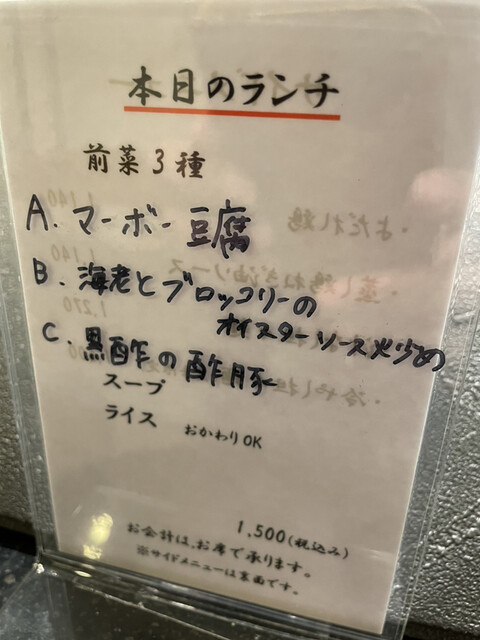 本日のランチ
前菜3種
A. マーボー豆腐
B. 海老とブロッコリーの
オイスターソース炒め
C. 黒酢の酢豚
スープ
ライス おかわりOK
1,500(税込み)
お会計は、お席で承ります。
※サイドメニューは裏面です。